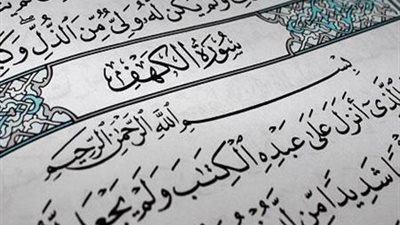 لَّهُۥ وَلِىٌّ مِّنَ ٱلذُّلِّ ۖ وَ
سُورَةُ الكَهْفِ
بِسْمِ ٱللَّهِ ٱلرَّحْمَٰنِ ٱلرَّحِيمِ
ٱلَّذِىٓ أَنزَلَ عَلَىٰ عَبْدِهِ ٱلْكِتَٰبَ وَلَمْ يَجْعَل لَّهُۥ
شَدِيدًا مِّن